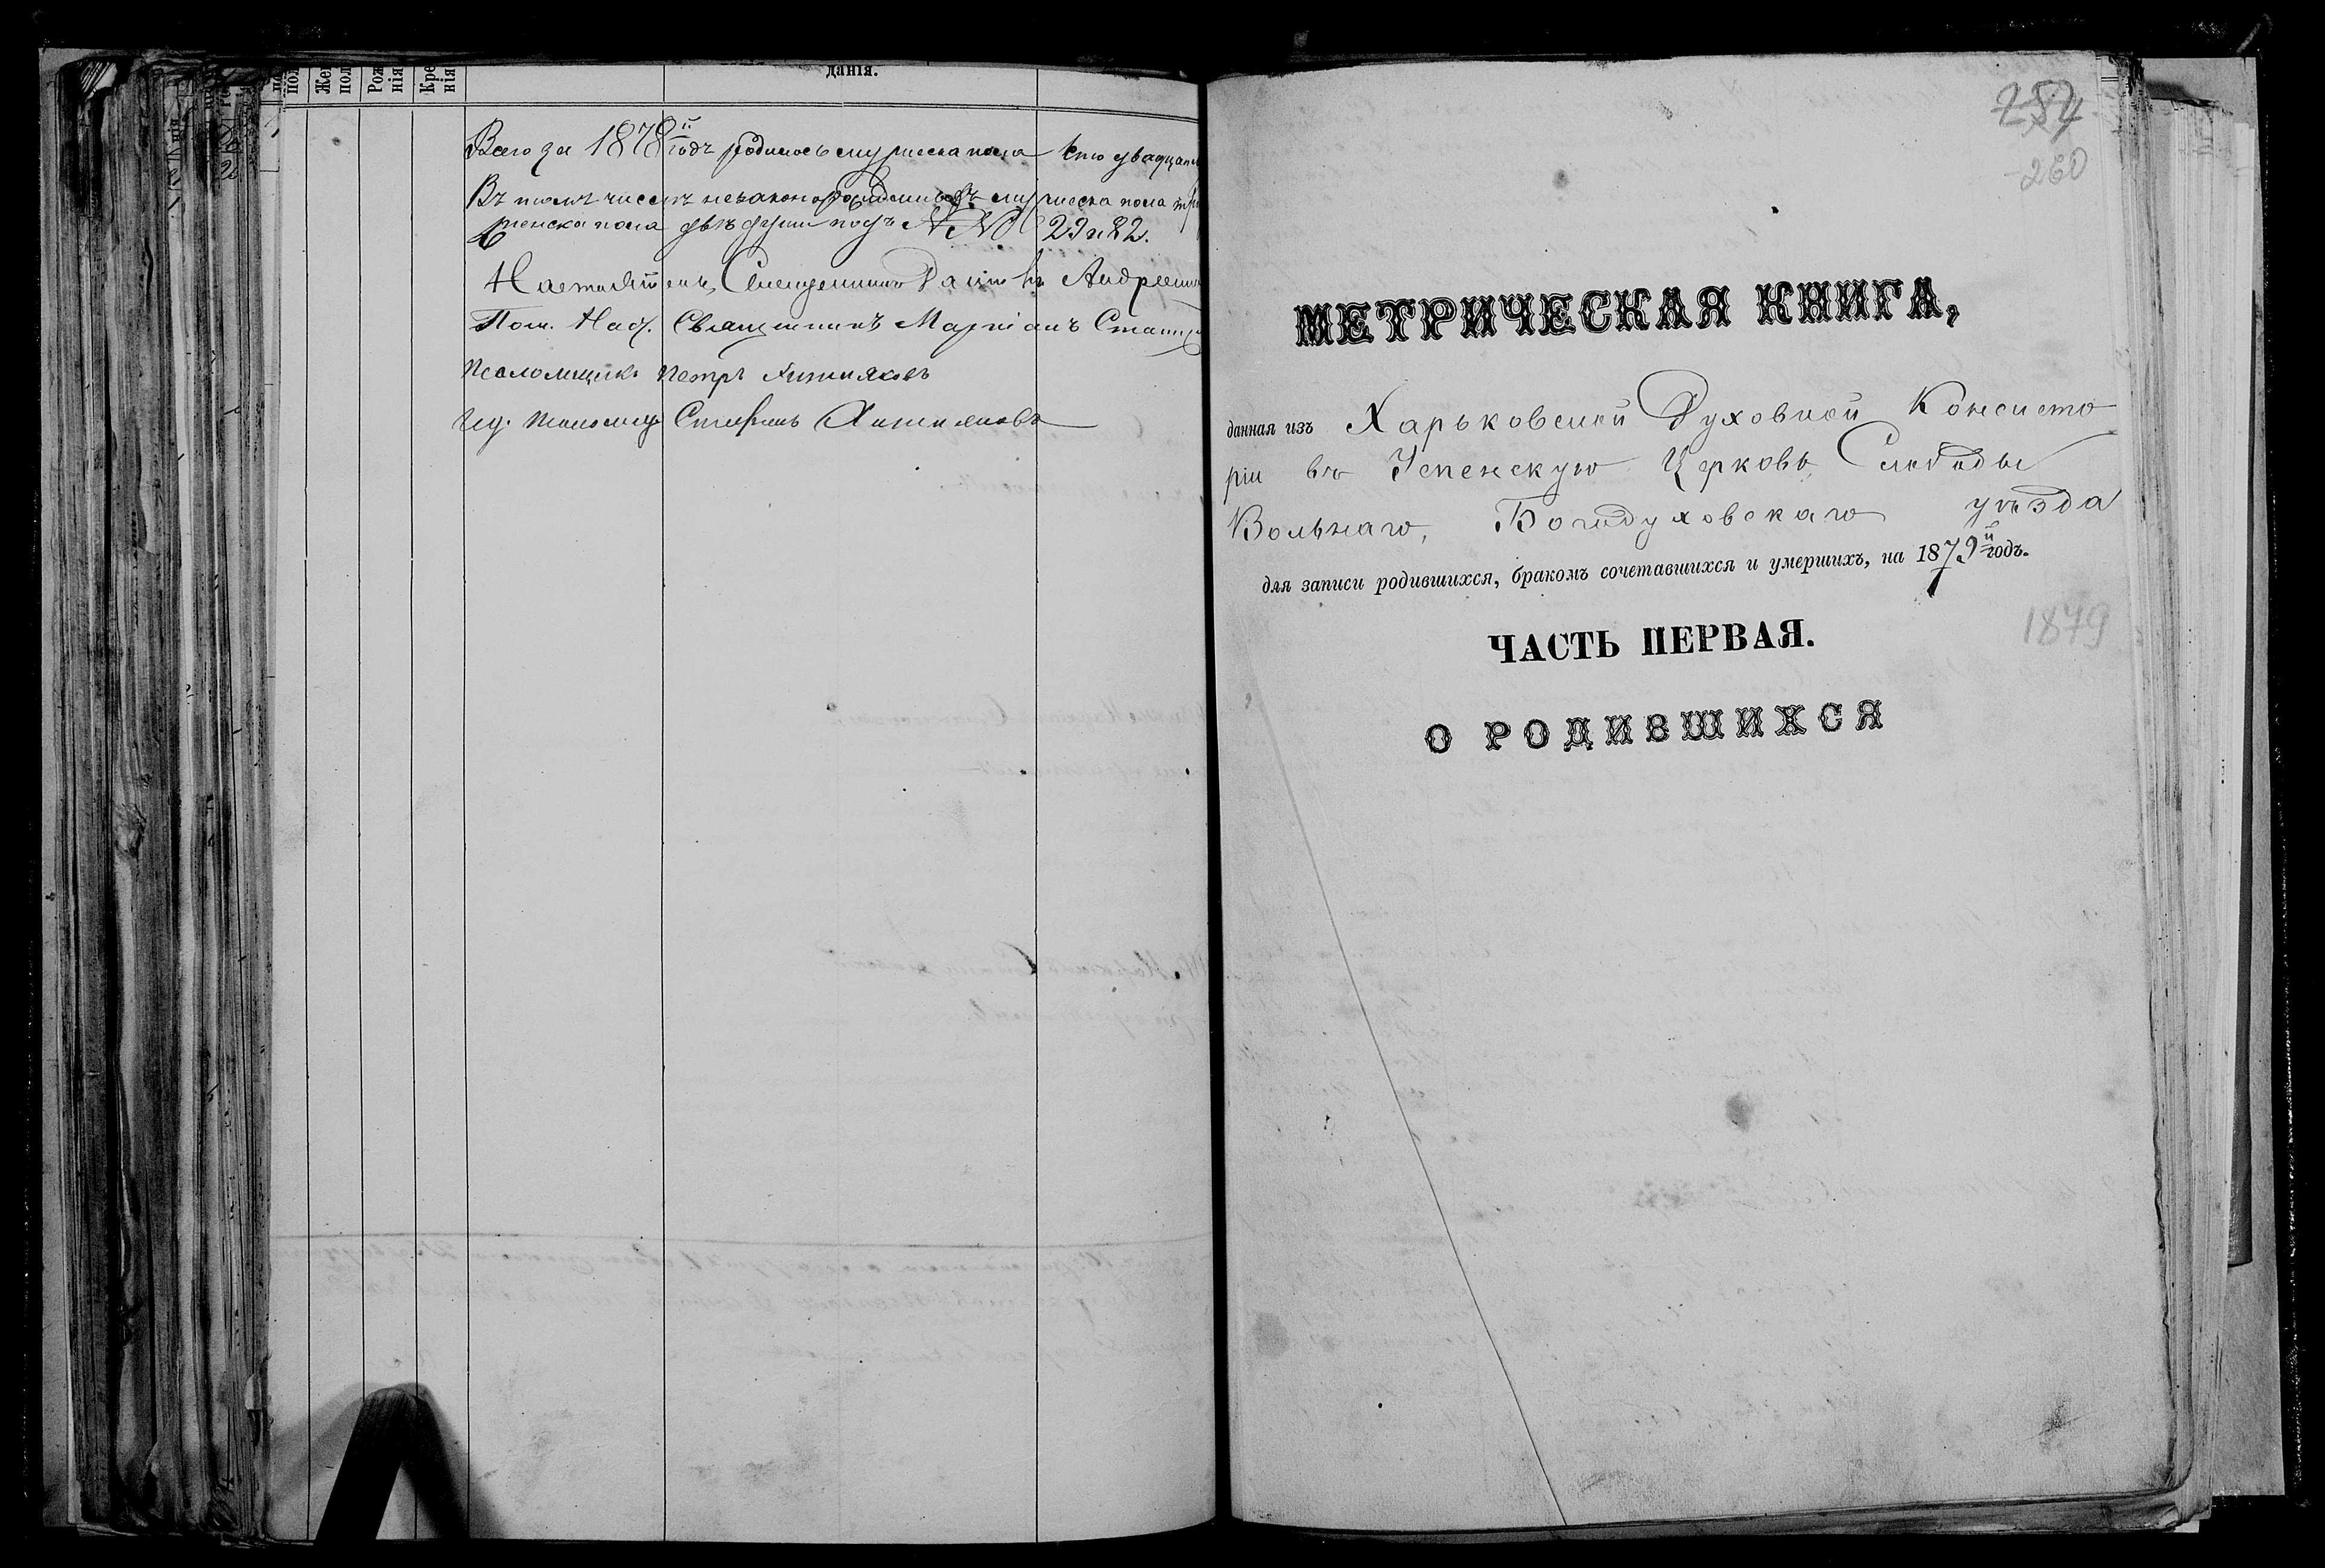 по
пол
Жен
пол
Рож
нія
Кре
нія
данія.
Всего за 1878й годъ родилось мужеска пола сто двадцать
Въ томъ числѣ незаконорожденныхъ мужеска пола
женска пола двѣ души подъ №№ 29 и 82.
Настоятель, Священникъ Андреенк
Пом. Наст. Священникъ Маркіанъ
Псаломщикъ Петръ Хижняковъ
Псаломщ Стефанъ Хижняковъ
254
260
МЕТРИЧЕСКАЯ КНИГА,
данная изъ Харьковской Духовной Консисто
ріи въ Успенскую Церковь, Слободы
Вольнаго, Богодуховскаго уѣзда
для записи родившихся, бракомъ сочетавшихся и умершихъ, на 1879й годъ.
1879
ЧАСТЬ ПЕРВАЯ.
О РОДИВШИХСЯ